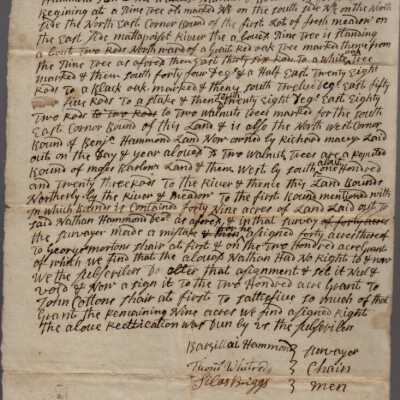 Begining at a Pine Tree marked N on the south side N on the North
side the North East Corner Bound of the first Lot of fresh meadow on
the East side mattapoiset River the above Pine Tree is standing
about Two Rods Northward of a Great Red oak Tree marked thence from
the Pine Tree as afored then East thirty six Rods to a white Tree
marked & then south forty four Degs & a Half East Twenty Eight
Rods to a Black oak marked & then south Twelve Degs East fifty
five Rods to a stake & then south Twenty Eight Degs East Eighty
Two Rods to Two Rods to Two walnut Trees marked for the south
East Corner Bound of this Land & is also the North west Corner
Bound of Benja Hammond Land Now owned by Richard macys Laid
outt on the Day & year above sd Two Walnut Trees are a Reputed
Bound of moses Barlow Land & then West by south about one Hundred
and Twenty three Rods to the River & thence this Land Bounds
Northerly by the River & meadow To the first Bound mentioned with
in which Bounds is Contained forty Nine acres of Land Laid out to
said Nathan Hammond Decd as afored, & in that survey of forty acres
the survayer made a mistake & assigned forty acres there of
to George morton shair at first & on the Two Hundred acre grant
of which we find that the above Nathan Had No Right to & now
We the subscribers Do alter that asignment & set it Null &
void & Now asign it to the Two Hundred acre Grant to
John Cottons shair at first to sattesfie so much of that
Grant the Remaining Nine acres we find asigned Right
the above Rectification was Dun by us the subscribers
Barzillai Hammond } survayer
Thoms Whitredg } Chain
Silas Briggs } men